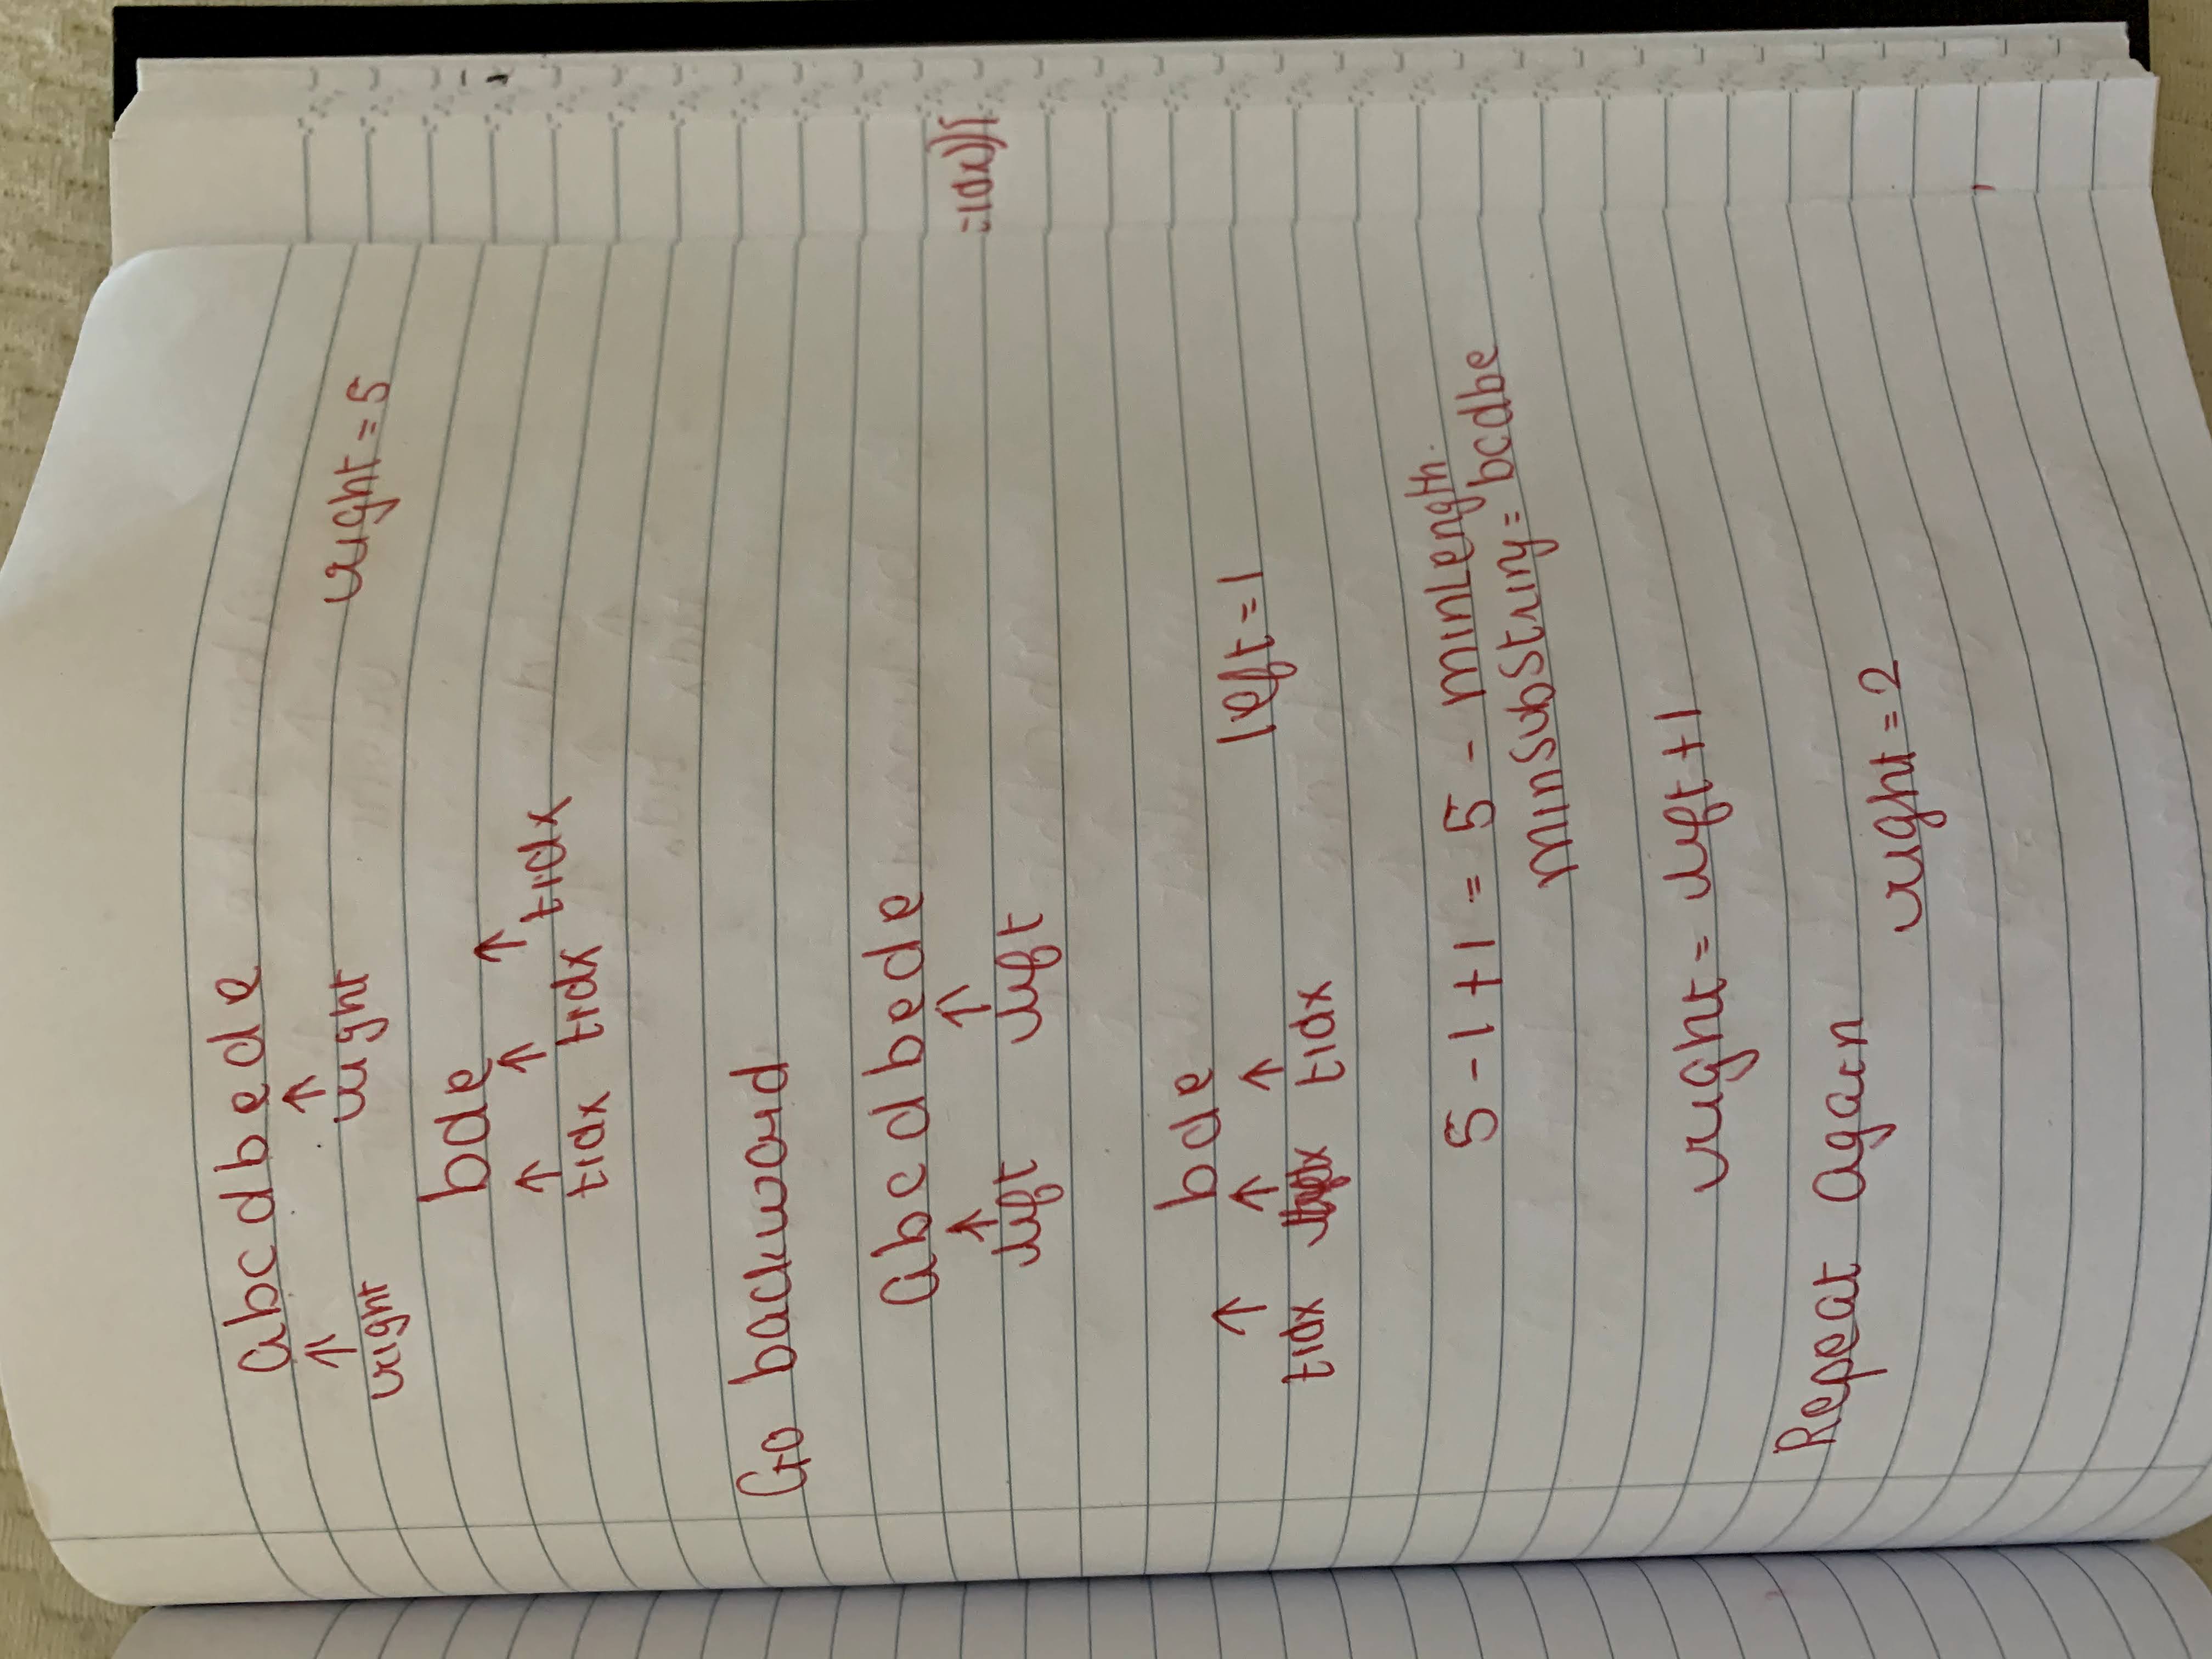 abcdbede
↑ ↑
right right right = 5
bde
↑ ↑ ↑
tidx tidx tidx
Go backward
abcdbede
↑ ↑
left left
bde
↑ ↑ ↑ left = 1
tidx tidx
5 - 1 + 1 = 5 - minLength.
minSubString = bcdbe
right = left + 1
Repeat again
right = 2